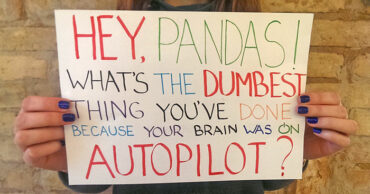 HEY, PANDAS!
WHAT'S THE DUMBEST
THING YOU'VE DONE
BECAUSE YOUR BRAIN WAS ON
AUTOPILOT?